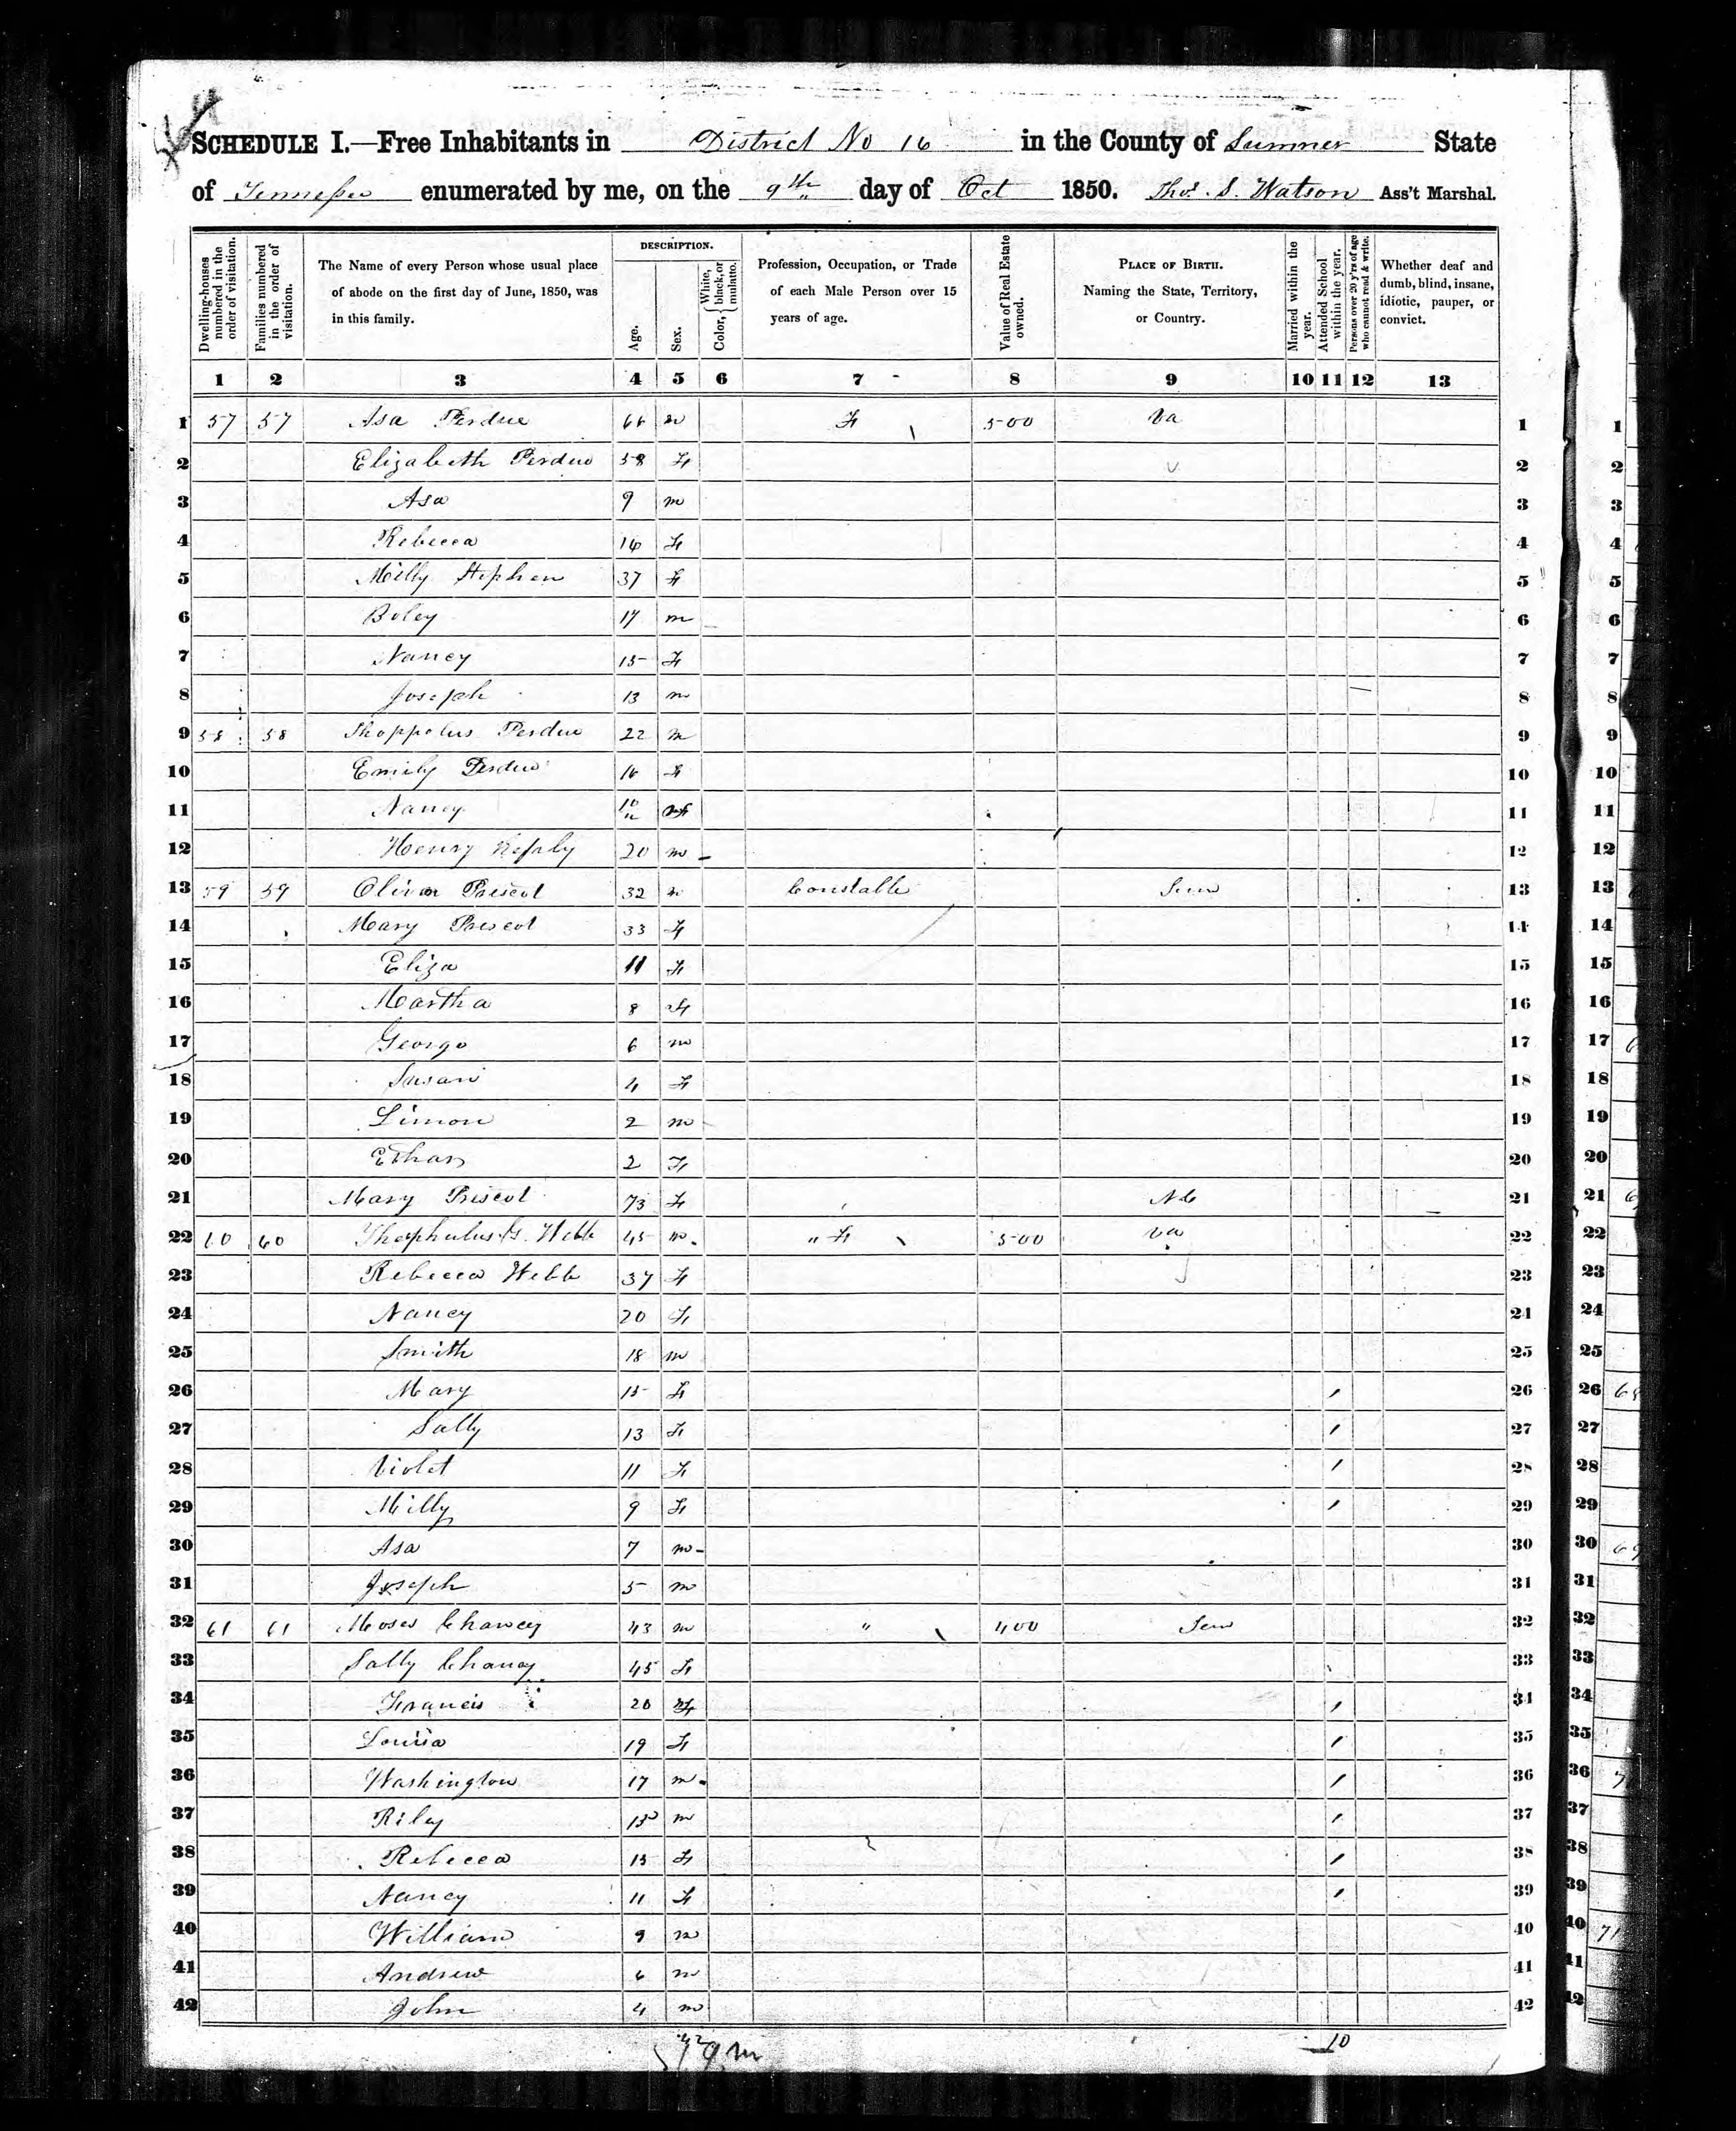 SCHEDULE I.—Free Inhabitants in District No 16 in the County of Sumner State
of Tennessee enumerated by me, on the 9th day of Oct 1850. Thos. S. Watson Ass't Marshal.
Dwelling-houses numbered in the order of visitation.
Families numbered in the order of visitation.
The Name of every Person whose usual place of abode on the first day of June, 1850, was in this family.
DESCRIPTION.
Age.
Sex.
Color, { White, black, or mulatto.
Profession, Occupation, or Trade of each Male Person over 15 years of age.
Value of Real Estate owned.
PLACE OF BIRTH. Naming the State, Territory, or Country.
Married within the year.
Attended School within the year.
Persons over 20 y'rs of age who cannot read & write.
Whether deaf and dumb, blind, insane, idiotic, pauper, or convict.
1 2 3 4 5 6 7 8 9 10 11 12 13
1 57 57 Asa Perdue 66 m F 500 Va 1
2 Elizabeth Perdue 58 F 2
3 Asa 9 m 3
4 Rebecca 16 F 4
5 Milly Stephen 37 F 5
6 Boley 17 m 6
7 Nancy 15 F 7
8 Joseph 13 m 8
9 58 58 Perdue 22 m 9
10 Emily Perdue 16 F 10
11 Nancy 10/12 F 11
12 Henry 20 m 12
13 59 59 Oliver Prescot 32 m Constable Tenn 13
14 Mary Prescot 33 F 14
15 Eliza 11 F 15
16 Martha 8 F 16
17 George 6 m 17
18 Susan 4 F 18
19 Simon 2 m 19
20 2 F 20
21 Mary Prescot 73 F NC 21
22 60 60 Thephulus G. Webb 45 m " F 500 Va 22
23 Rebecca Webb 37 F 23
24 Nancy 20 F 24
25 Smith 18 m 25
26 Mary 15 F / 26
27 Sally 13 F / 27
28 Violet 11 F / 28
29 Milly 9 F / 29
30 Asa 7 m 30
31 Joseph 5 m 31
32 61 61 Moses Chaney 43 m " 400 Tenn 32
33 Sally Chaney 45 F 33
34 Francis 20 F / 34
35 Louisa 19 F / 35
36 Washington 17 m / 36
37 Riley m / 37
38 Rebecca 13 F / 38
39 Nancy 11 F / 39
40 William 9 m 40
41 Andrew 6 m 41
42 John 4 m 42
10